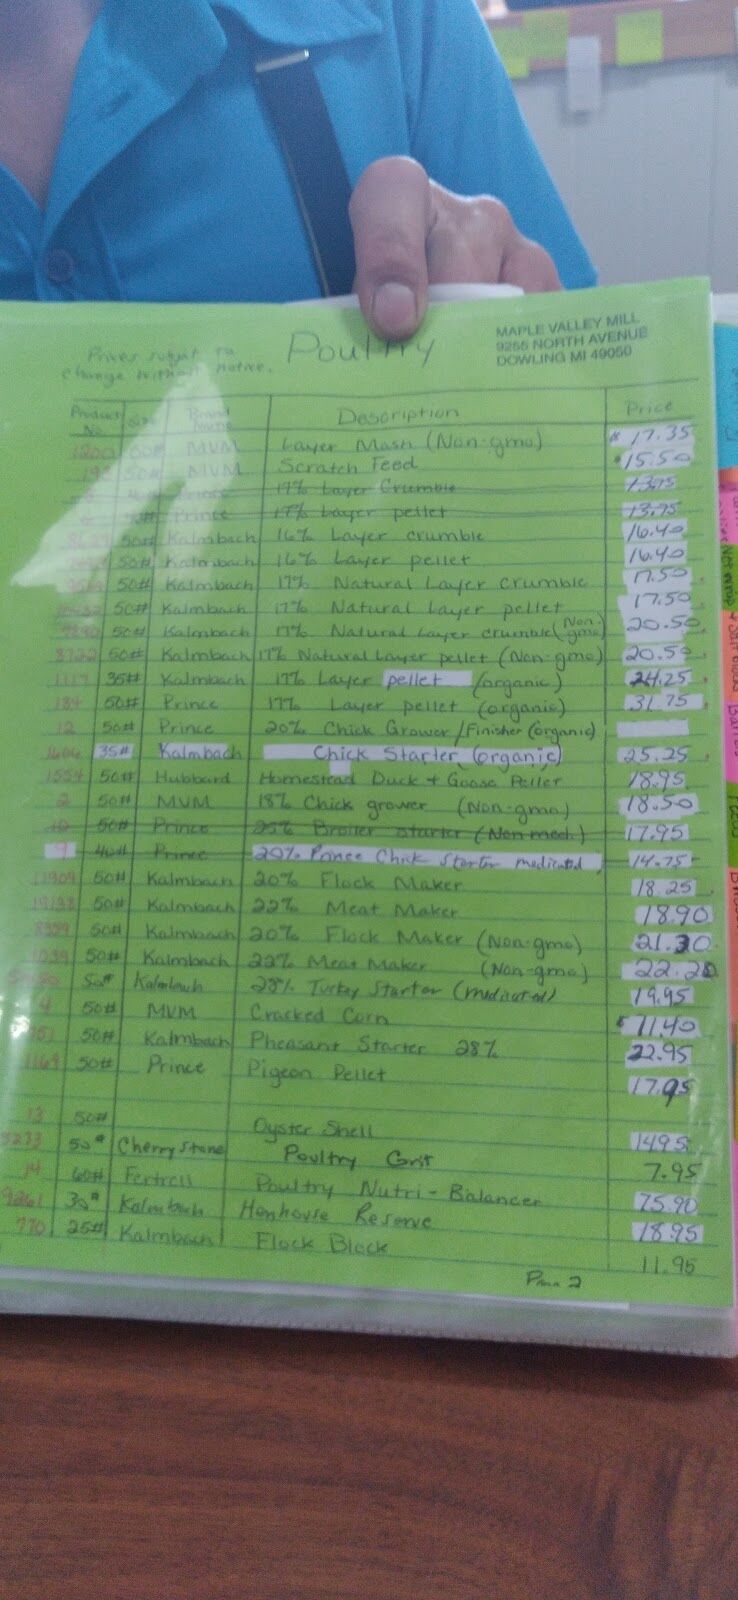 Prices subject to
change without notice.
Poultry
MAPLE VALLEY MILL
9255 NORTH AVENUE
DOWLING MI 49050
Product No. Size Brand Name Description Price
1200 50# MVM Layer Mash (Non-gmo) $17.35
192 50# MVM Scratch Feed $15.50
Prince 17% Layer Crumble 13.75
Prince 17% Layer pellet 13.75
50# Kalmbach 16% Layer crumble 16.40
50# Kalmbach 16% Layer pellet 16.40
50# Kalmbach 17% Natural Layer crumble 17.50
50# Kalmbach 17% Natural Layer pellet 17.50
50# Kalmbach 17% Natural Layer crumble (Non-gmo) 20.50
8722 50# Kalmbach 17% Natural Layer pellet (Non-gmo) 20.50
1117 35# Kalmbach 17% Layer pellet (organic) 24.25
184 50# Prince 17% Layer pellet (organic) 31.75
12 50# Prince 20% Chick Grower/Finisher (organic)
1606 35# Kalmbach Chick Starter (organic) 25.25
1554 50# Hubbard Homestead Duck + Goose Pellet 18.95
2 50# MVM 18% Chick grower (Non-gmo) 18.50
10 50# Prince 25% Broiler starter (Non med.) 17.95
9 40# Prince 20% Prince Chick Starter medicated 14.75
11909 50# Kalmbach 20% Flock Maker 18.25
50# Kalmbach 22% Meat Maker 18.90
50# Kalmbach 20% Flock Maker (Non-gmo) 21.30
50# Kalmbach 22% Meat Maker (Non-gmo) 22.20
50# Kalmbach 28% Turkey Starter (medicated) 19.95
4 50# MVM Cracked Corn $11.40
50# Kalmbach Pheasant Starter 28% 22.95
1169 50# Prince Pigeon Pellet 17.95
13 50# Oyster Shell 14.95
50# Cherry Stone Poultry Grit 7.95
14 60# Fertrell Poultry Nutri-Balancer 75.90
30# Kalmbach Henhouse Reserve 18.95
770 25# Kalmbach Flock Block 11.95
2